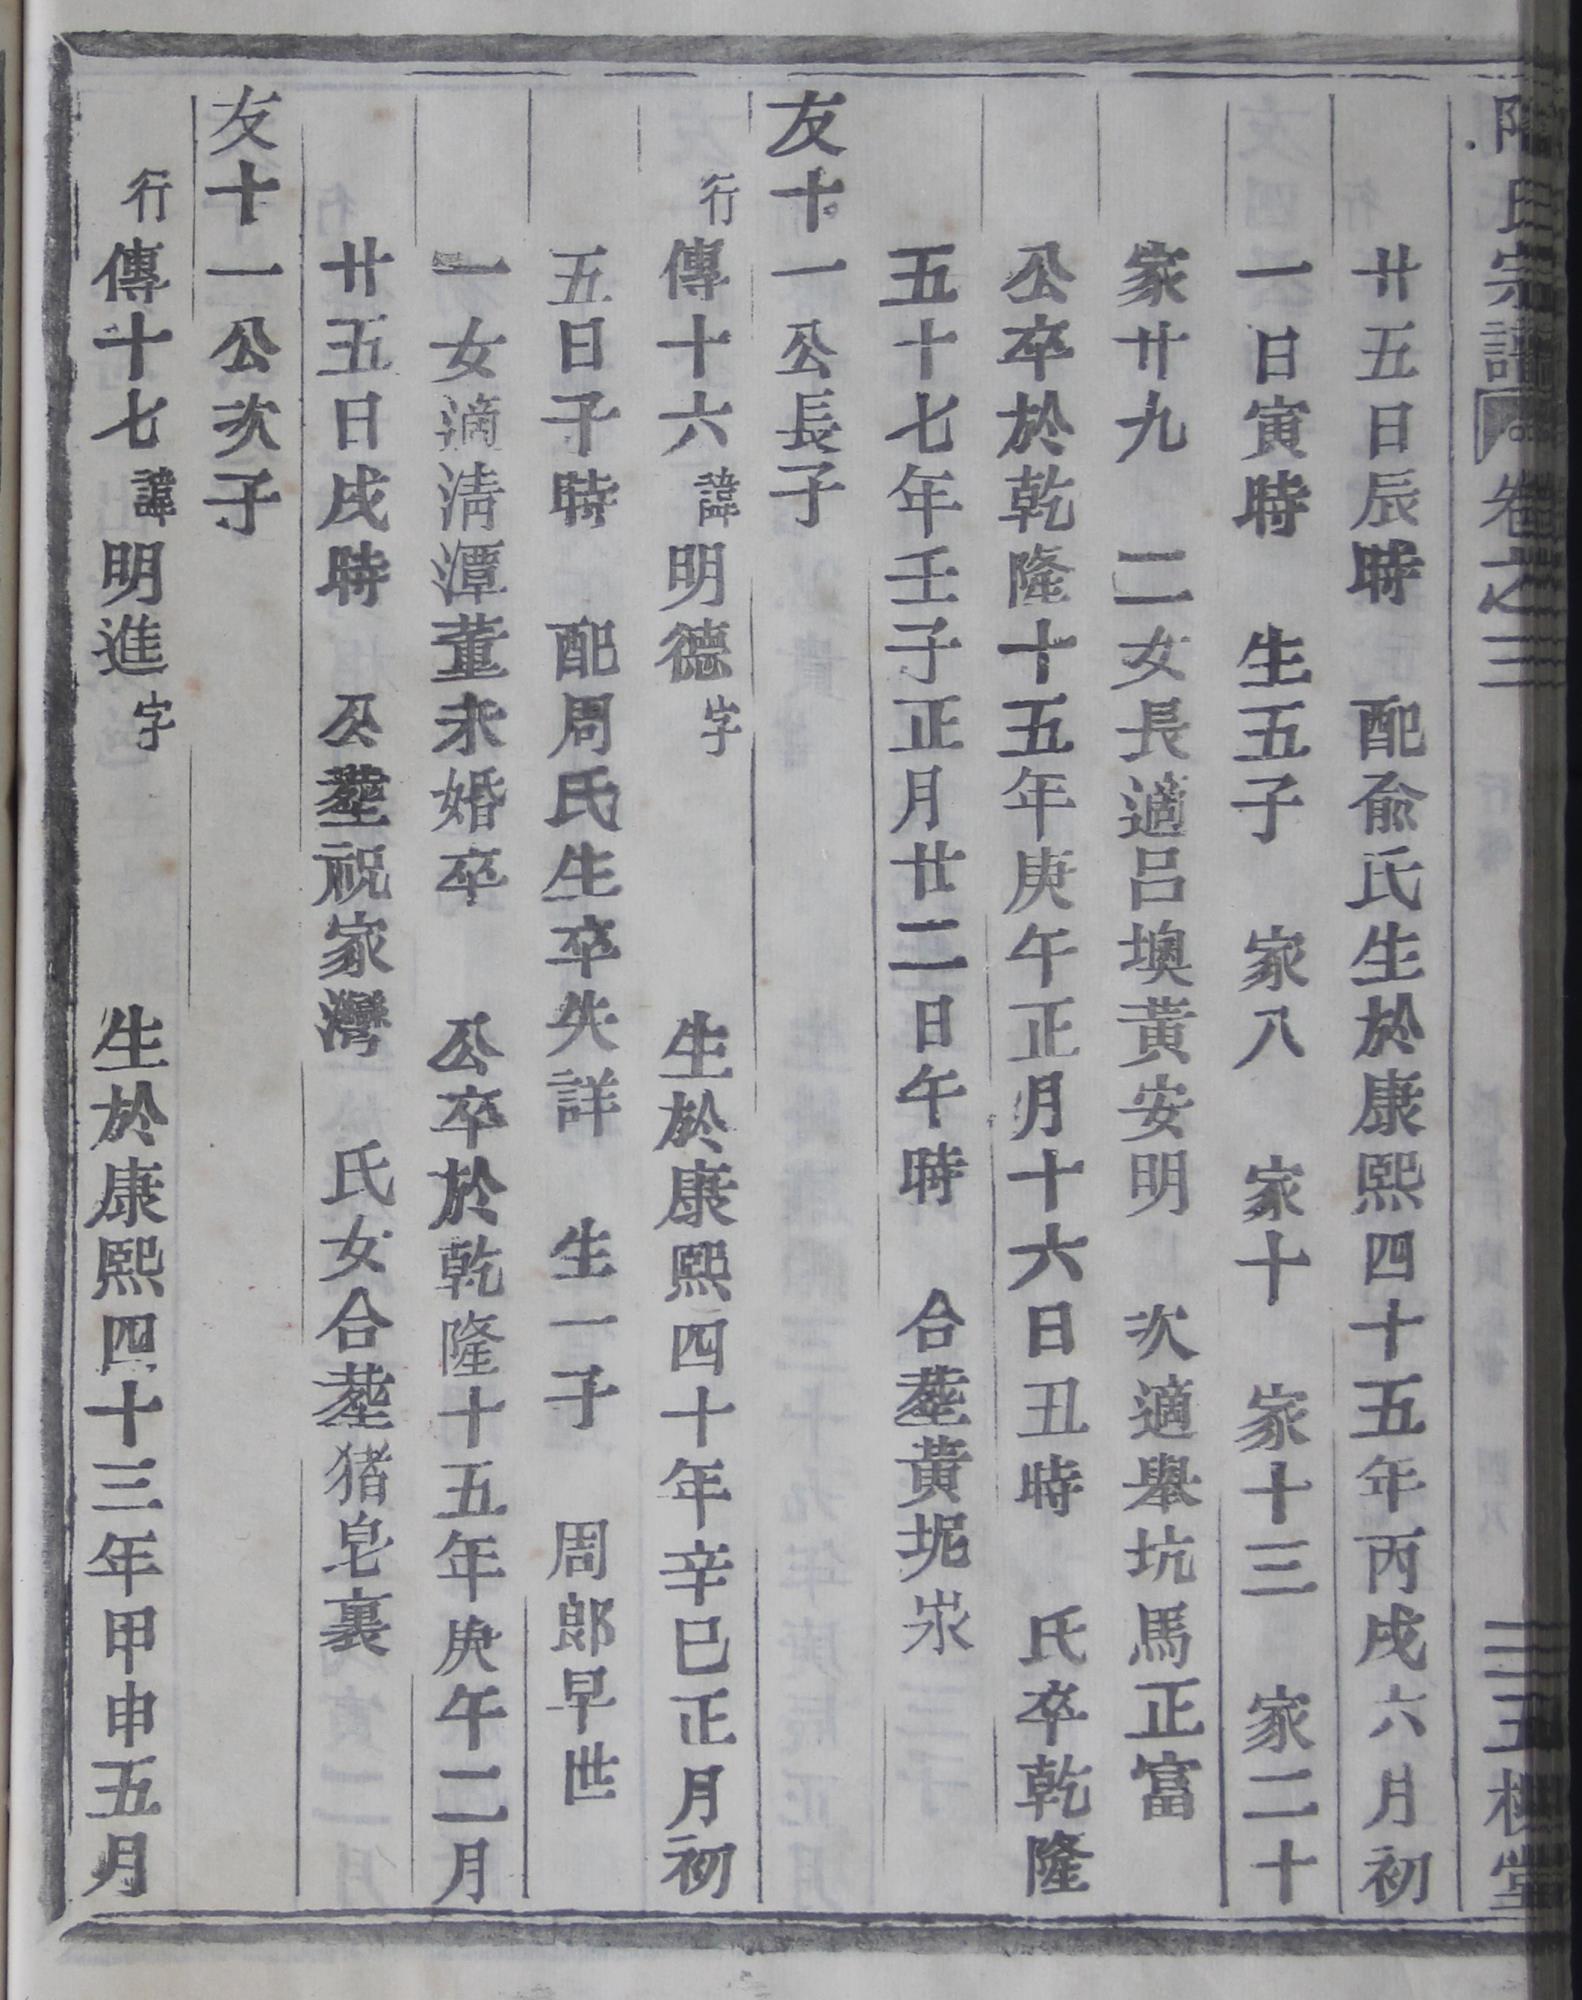 氏宗譜 卷之三
廿五日辰時 配俞氏生於康熙四十五年丙戌六月初
一日寅時 生五子 家八 家十 家十三 家二十
家廿九 二女長適呂墺黃安明 次適舉坑馬正富
公卒於乾隆十五年庚午正月十六日丑時 氏卒乾隆
五十七年壬子正月廿二日午時 合塟黃坭
友十一公長子
行傳十六諱明德字 生於康熙四十年辛巳正月初
五日子時 配周氏生卒失詳 生一子 周郎早世
一女適淸潭董未婚卒 公卒於乾隆十五年庚午二月
廿五日戌時 公塟祝家灣 氏女合塟猪皂裏
友十一公次子
行傳十七諱明進字 生於康熙四十三年甲申五月